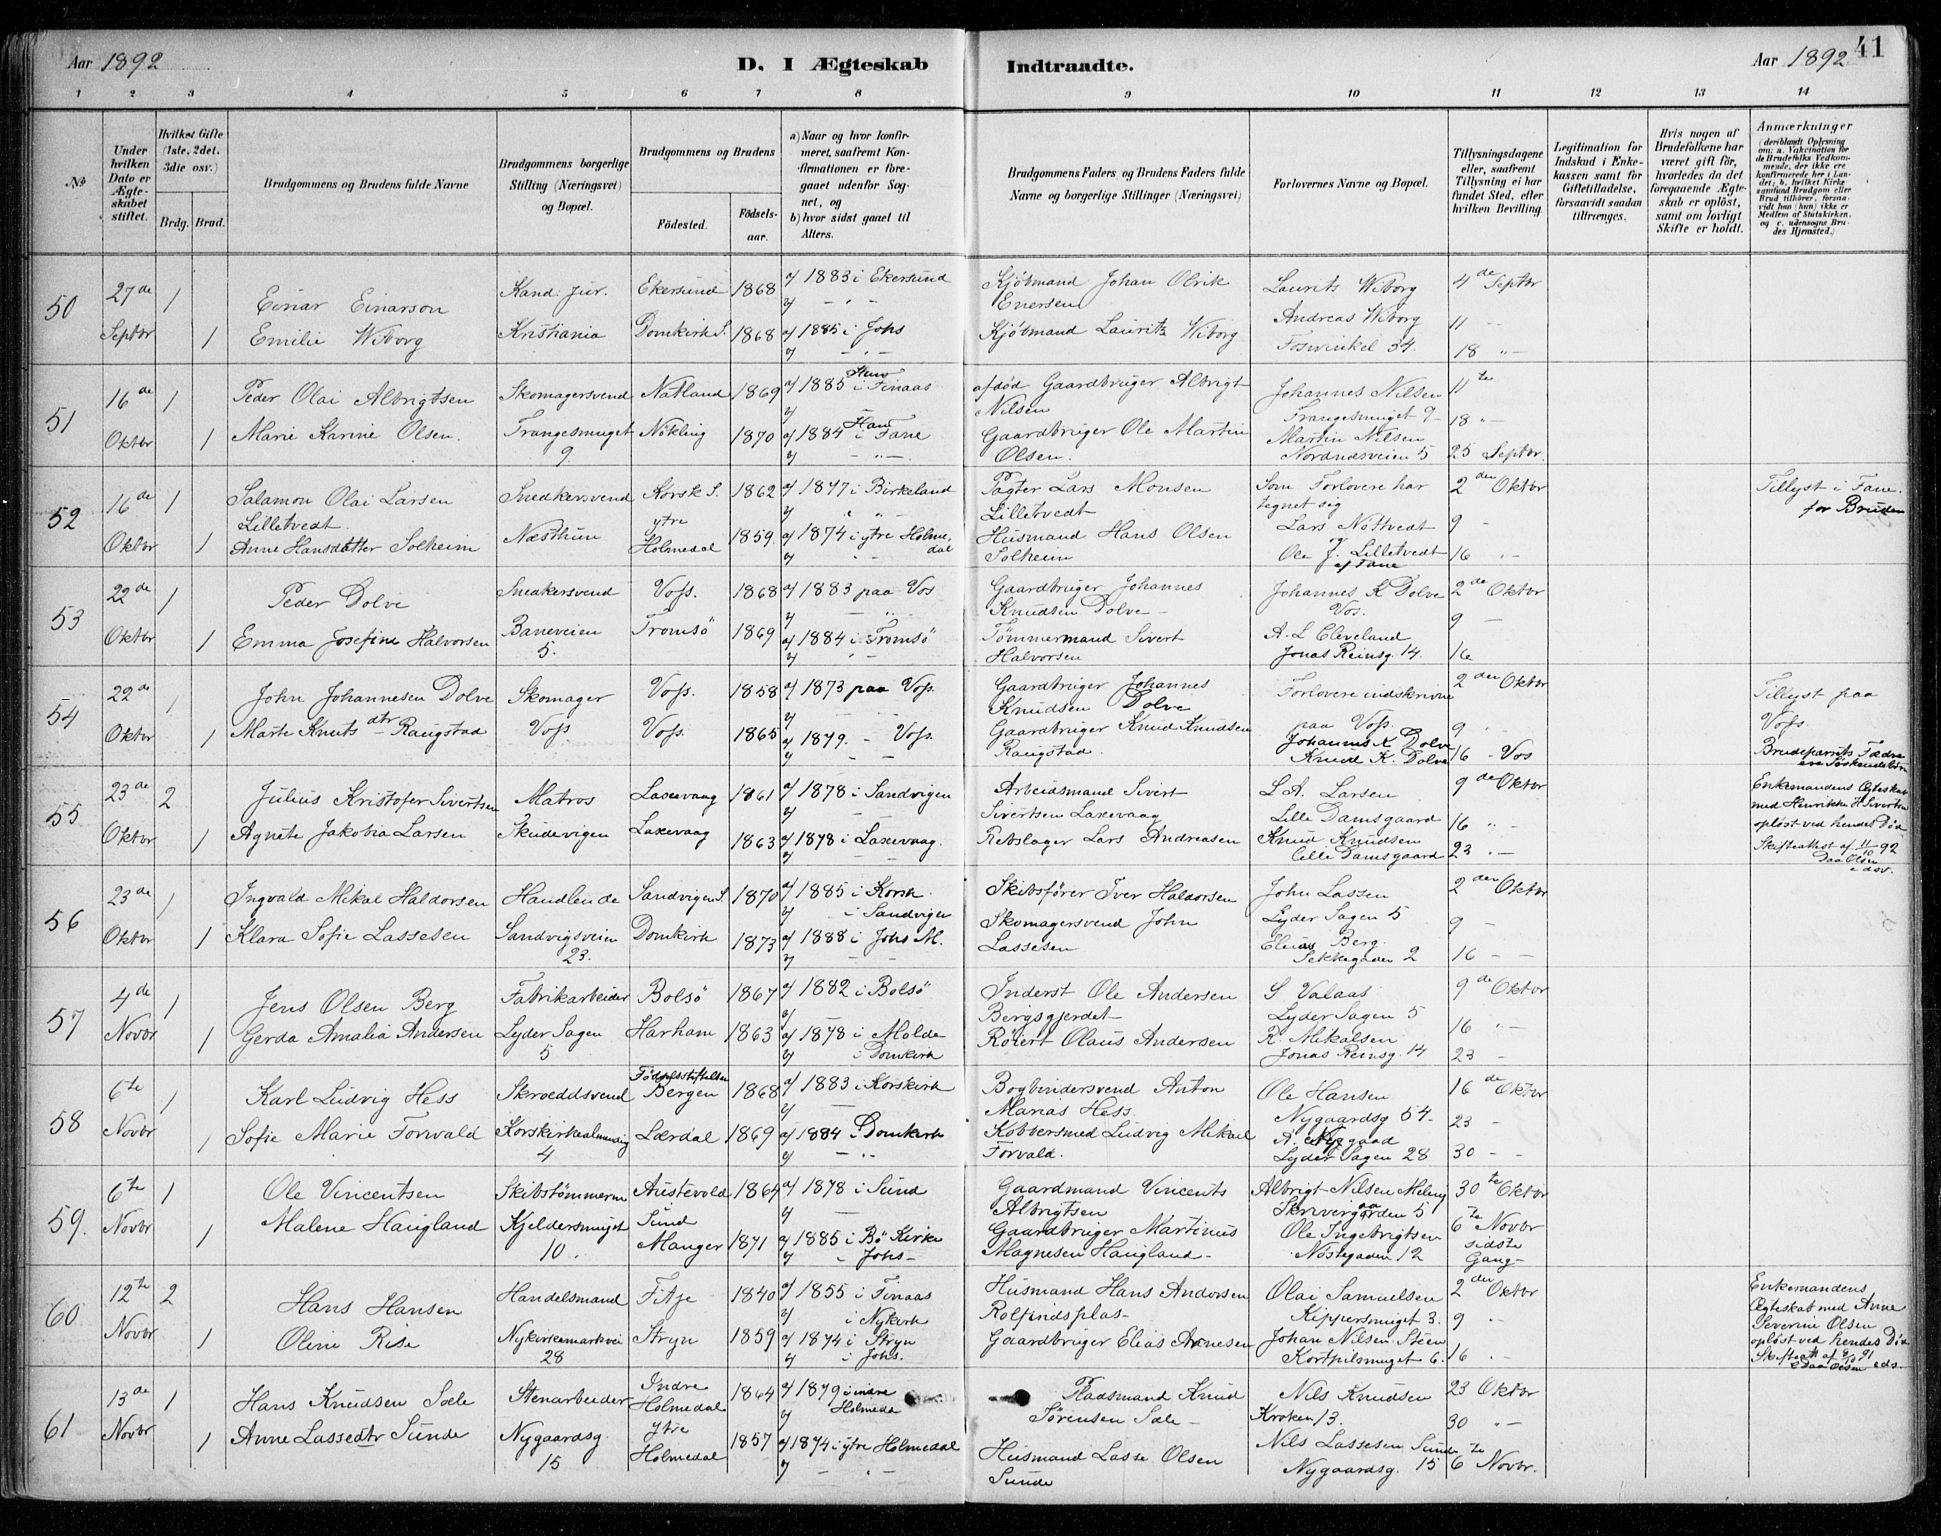 Aar 1892
D. I Ægteskab Indtraadte.
Aar 1892
41
1 2 3 4 5 6 7 8 9 10 11 12 13 14
№
Under hvilken Dato er Ægteskabet stiftet.
Hvilket Gifte (1ste, 2det, 3die osv.)
Brdg. Brud.
Brudgommens og Brudens fulde Navne
Brudgommens borgerlige Stilling (Næringsvei) og Bopæl.
Brudgommens og Brudens
Födested. Födselsaar.
a) Naar og hvor konfirmeret, saafremt Konfirmationen er foregaaet udenfor Sognet, og
b) hvor sidst gaaet til Alters.
Brudgommens Faders og Brudens Faders fulde Navne og borgerlige Stillinger (Næringsvei)
Forlovernes Navne og Bopæl.
Tillysningsdagene eller, saafremt Tillysning ei har fundet Sted, efter hvilken Bevilling.
Legitimation for Indskud i Enkekassen samt for Giftetilladelse, forsaavidt saadan tiltrænges.
Hvis nogen af Brudefolkene har været gift för, hvorledes da det foregaaende Ægteskab er oplöst, samt om lovligt Skifte er holdt.
Anmærkninger (deriblandt Oplysning om: a. Vakcination for de Brudefolks Vedkommende, der ikke ere konfirmerede her i Landet; b. hvilket Kirkesamfund Brudgom eller Brud tilhörer, forsaavidt han (hun) ikke er Medlem af Statskirken, og c. udensogns Brudes Hjemsted.)
50 27de Septbr 1 Einar Einarson Kand. jur. Ekersund 1868 a/ 1883 i Ekersund Kjøbmand Johan Olrik Enersen Laurits Wiborg 4de Septbr
1 Emilie Wiborg Kristiania Domkirk S. 1868 a/ 1885 i Johs Kjøbmand Lauritz Wiborg Andreas Wiborg Foswinkel 34 11 18
51 16de Oktbr 1 Peder Olai Albrigtsen Skomagersvend Natland 1869 a/ 1885 i Finaas afdød Gaardbruger Albrigt Nilsen Johannes Nilsen Trangesmuget 9 11te
1 Marie Karine Olsen. Trangesmuget 9. Nökling 1870 a/ 1884 i Fane Gaardbruger Ole Martin Olsen. Martin Nilsen Nordnæsveien 5 18 25 Septbr.
52 16de Oktbr 1 Salamon Olai Larsen Lilletvedt. Snedkersvend Korsk S. 1862 a/ 1877 i Birkeland Pagter Lars Monsen Lilletvedt Som Forlovere har tegnet sig 2den Oktbr Tillyst i Fane for Bruden
1 Anne Hansdatter Solheim Næsttun ytre Holmedal 1859 a/ 1874 i ytre Holmedal Husmand Hans Olsen Solheim Lars Nottvedt Ole J. Lilletvedt af Fane 9 16
53 22de Oktbr 1 Peder Dolve Snedkersvend Voss. 1868 a/ 1883 paa Vos Gaardbruger Johannes Knudsen Dolve Johannes K Dolve Vos. 2de Oktbr
1 Emma Josefine Halvorsen Baneveien 5. Tromsö 1869 a/ 1884 i Tromsö Tömmermand Sivert Halvorsen A. L Cleveland Jonas Reinsg. 14. 9 16
54 22de Oktbr 1 John Johannesen Dolve Skomager Voss. 1858 a/ 1873 paa Voss. Gaardbruger Johannes Knudsen Dolve Forlovere indskrivne paa Voss. 2den Oktbr Tillyst paa Voss.
1 Marte Knutsdtr Raugstad Voss Voss. 1865 a/ 1879. - Voss. Gaardbruger Knud Knudsen Raugstad. Johannes K Dolve Knud K. Dolve 9 16 - Vos Brudeparrets Fædre ere Søskendebørn
55 23de Oktbr 2 Julius Kristofer Sivertsen Matros Laxevaag 1861 a/ 1878 i Sandvigen Arbeidsmand Sivert Sivertsen Laxevaag L A. Larsen Lille Damsgaard 9de Oktbr Enkemandens Ægteskab med Henrikke H. Sivertsen opløst ved hendes Død Skifteattest af 11/10 92
1 Agnete Jakobia Larsen Skudevigen Laxevaag 1863 a/ 1878 i Laxevaag. Rebslager Lars Andreasen Knud Knudsen Lille Damsgaard 16 23
56 23de Oktbr 1 Ingvald Mikal Haldorsen Handlende Sandvigen S. 1870 a/ 1885 i Korsk. i Sandvigen Skibsfører Iver Haldorsen John Lassen Lyder Sagen 5 2den Oktbr
1 Klara Sofie Lassesen Sandvigsveien 23. Domkirk 1873 a/ 1888 i Johs M. Skomagersvend John Lassesen Elias Berg. Sekkegaden 2 9 16
57 4de Novbr 1 Jens Olsen Berg Fabrikarbeider Bolsö 1867 a/ 1882 i Bolsö Inderst Ole Andersen Bergsgjerdet S Valaas Lyder Sagen 5 9de Oktbr
1 Gerda Amalia Andersen Lyder Sagen 5 Harham 1863 a/ 1878 i Molde i Domkirk Røiert Olaus Andersen R. Mikalsen Jonas Reinsg. 14 16 23
58 6te Novbr 1 Karl Ludvig Hess Skrædsvend Fødselsstiftelsen Bergen 1868 a/ 1883 i Korskirk Bogbindersvend Anton Marias Hess. Ole Hansen Nygaardsg 54 16de Oktbr
1 Sofie Marie Forwald Korskirkealmindig 4 Lærdal 1869 a/ 1884 i Domkirk Kobbersmed Ludvig Mikael Forvald. A. Nygaad Lyder Sagen 28 23 30
59. 6te Novbr 1 Ole Vincentsen Skibstömmerm Austevold 1867 a/ 1878 i Sund Gaardmand Vincents Albrigtsen Albrigt Nilsen Meling Skrivergaarden 5 30te Oktbr
1 Malene Haugland Kjeldersmuget 10. Sund Manger 1871 a/ 1885 i Bö Kirke i Johs Gaardbruger Martinus Magnesen Haugland Ole Ingebrigtsen Nöstegaden 12 6te Novbr sidste Gang
60 12te Novbr 2 Hans Hansen Handelsmand Fitje 1840 a/ 1855 i Finaas i Nykirk Husmand Hans Andersen Rolfsndsplas Olai Samuelsen Kippersmuget 3. 2den Oktbr Enkemandens Ægteskab med Anne Severine Olsen opløst ved hendes Død
1 Oline Rise Nykirkemarkvei 28 Stryn 1859 a/ 1874 i Stryn i Johs. Gaardbruger Elias Arnesen Johan Nilsen Steen Kortpilsmuget 6. 9 16
61 13de Novbr 1 Hans Knudsen Sæle Stenarbeider Indre Holmedal 1864 a/ 1879 i indre Holmeda Pladsmand Knud Sörensen Sæle Nils Knudsen Kroken 13. 23 Oktbr
1 Anne Lassedtr Sunde Nygaardsg. 15 ytre Holmedal 1857 a/ 1874 i ytre Holmedal Husmand Lasse Olsen Sunde Nils Lassesen Sunde Nygaardsg. 15 30 6te Novbr.